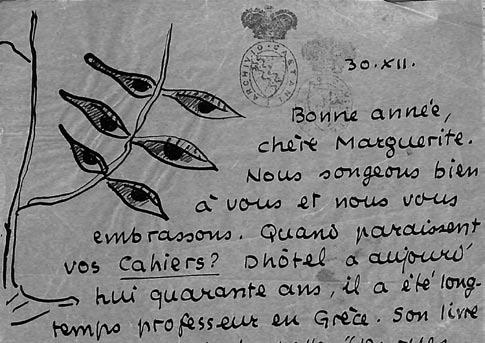 ARCHIVIO CAETANI
30.XII.
Bonne année,
chère Marguerite.
Nous songeons bien
à vous et nous vous
embrassons. Quand paraissent
vos Cahiers? Dhôtel a aujourd'
hui quarante ans, il a été long-
temps professeur en Grèce. Son livre